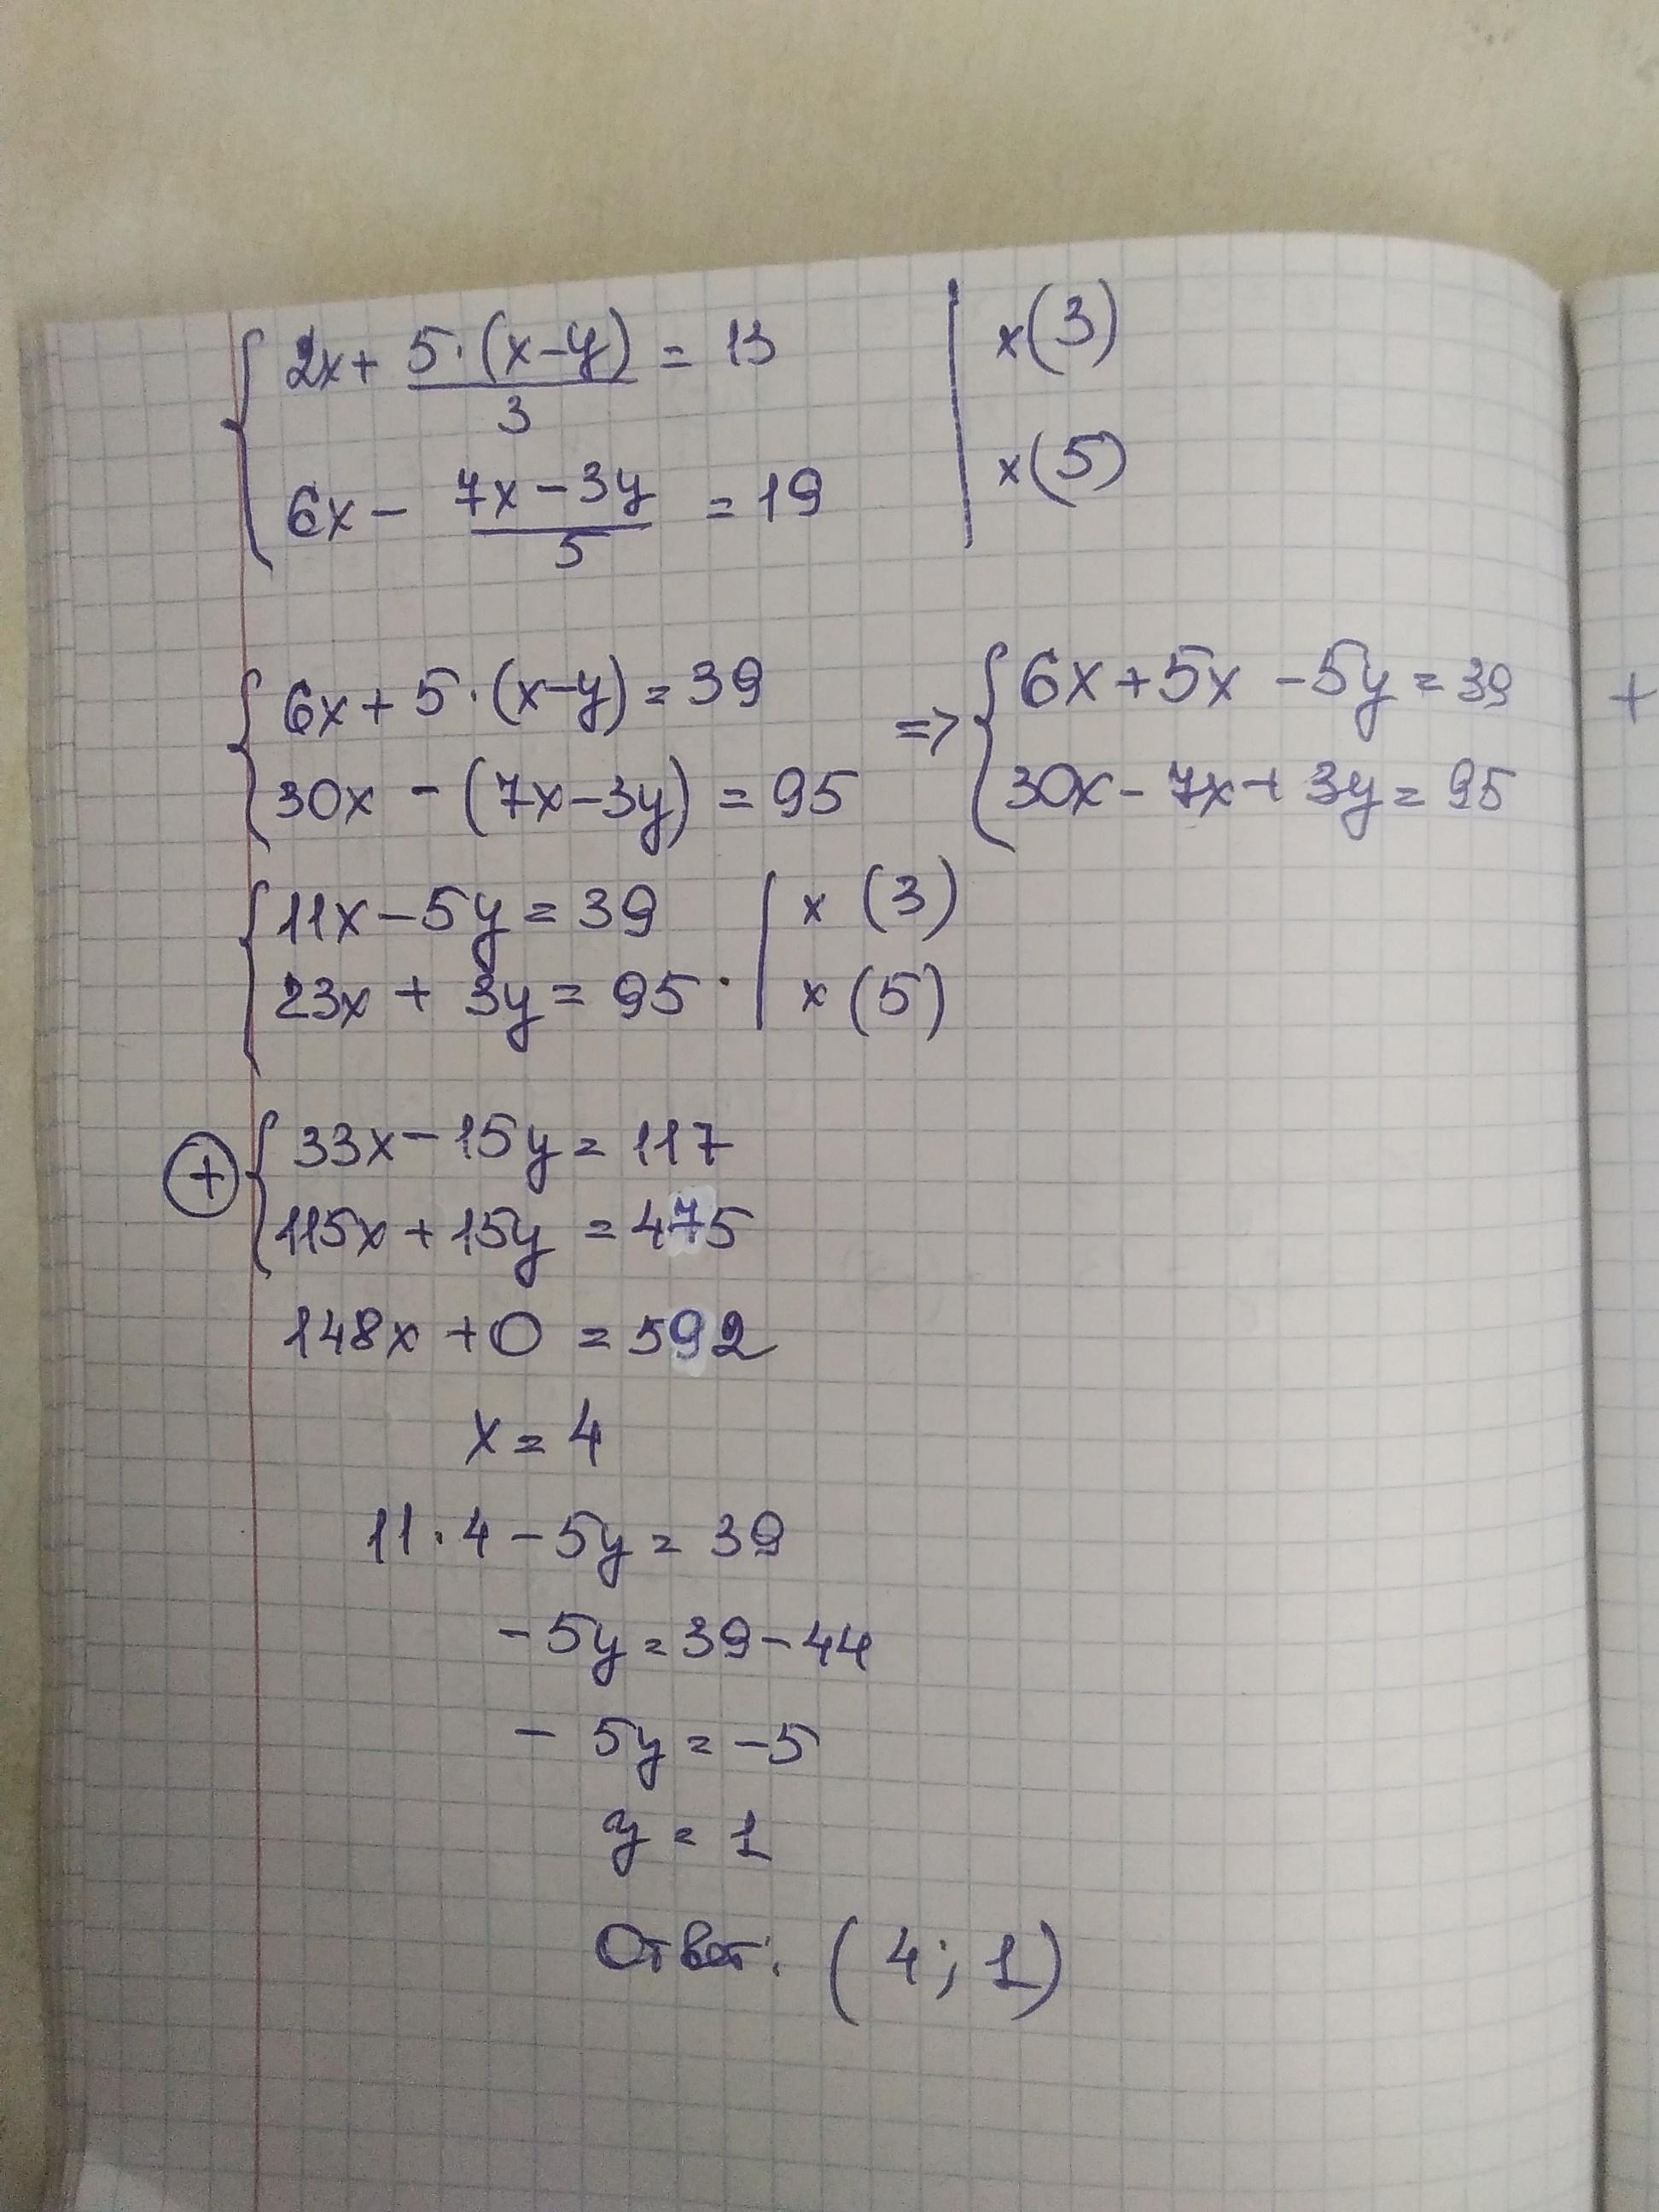 2x + 5·(x-y)/3 = 13 | x(3)
6x - 7x-3y/5 = 19 | x(5)
6x + 5·(x-y) = 39 => 6x + 5x - 5y = 39 +
30x - (7x-3y) = 95 30x - 7x + 3y = 95
11x - 5y = 39 | x (3)
23x + 3y = 95 · | x (5)
+ 33x - 15y = 117
115x + 15y = 475
148x + 0 = 592
x = 4
11·4 - 5y = 39
-5y = 39 - 44
- 5y = -5
y = 1
Ответ: (4; 1)